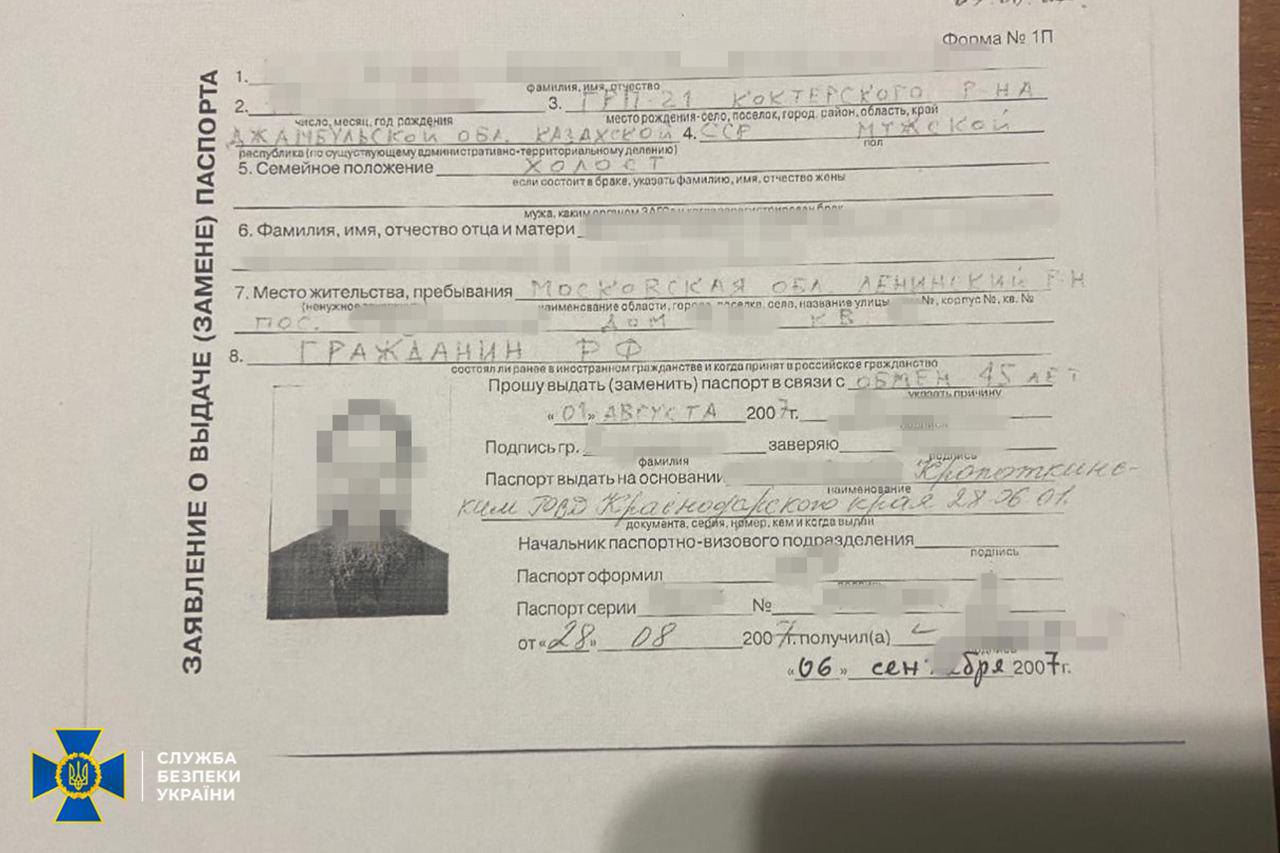 Форма № 1П
ЗАЯВЛЕНИЕ О ВЫДАЧЕ (ЗАМЕНЕ) ПАСПОРТА
1.
фамилия, имя, отчество
2. 3. ГРП-21 КОКТЕРСКОГО Р-НА
число, месяц, год рождения место рождения-село, поселок, город, район, область, край
ДЖАМБУЛЬСКОЙ ОБЛ. КАЗАХСКОЙ 4. ССР МУЖСКОЙ
республика (по существующему административно-территориальному делению) пол
5. Семейное положение ХОЛОСТ
если состоит в браке, указать фамилию, имя, отчество жены
мужа, каким органом ЗАГСа и когда зарегистрирован брак
6. Фамилия, имя, отчество отца и матери
7. Место жительства, пребывания МОСКОВСКАЯ ОБЛ. ЛЕНИНСКИЙ Р-Н
(ненужное наименование области, города, поселка, села, название улицы №, корпус №, кв. №
ПОС. ДОМ КВ.
8. ГРАЖДАНИН РФ
состоял ли ранее в иностранном гражданстве и когда принят в российское гражданство
Прошу выдать (заменить) паспорт в связи с ОБМЕН 45 ЛЕТ
указать причину
«01» АВГУСТА 2007г.
подпись
Подпись гр. заверяю
фамилия подпись
Паспорт выдать на основании Кропоткинс-
наименование
ким ГОВД Краснодарского края 28.06.01.
документа, серия, номер, кем и когда выдан
Начальник паспортно-визового подразделения
подпись
Паспорт оформил
Паспорт серии №
от «28» 08 2007г. получил(а)
подпись
«06» сентября 2007г.
СЛУЖБА
БЕЗПЕКИ
УКРАЇНИ